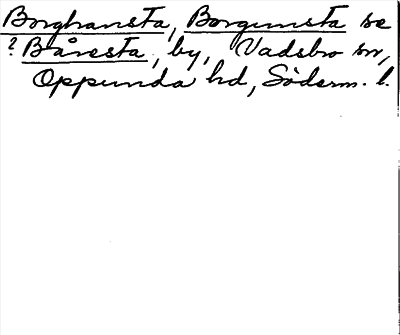 Borghansta, Borgunsta se
? Båresta, by, Vadsbro sn,
Oppunda hd, Söderm. l.